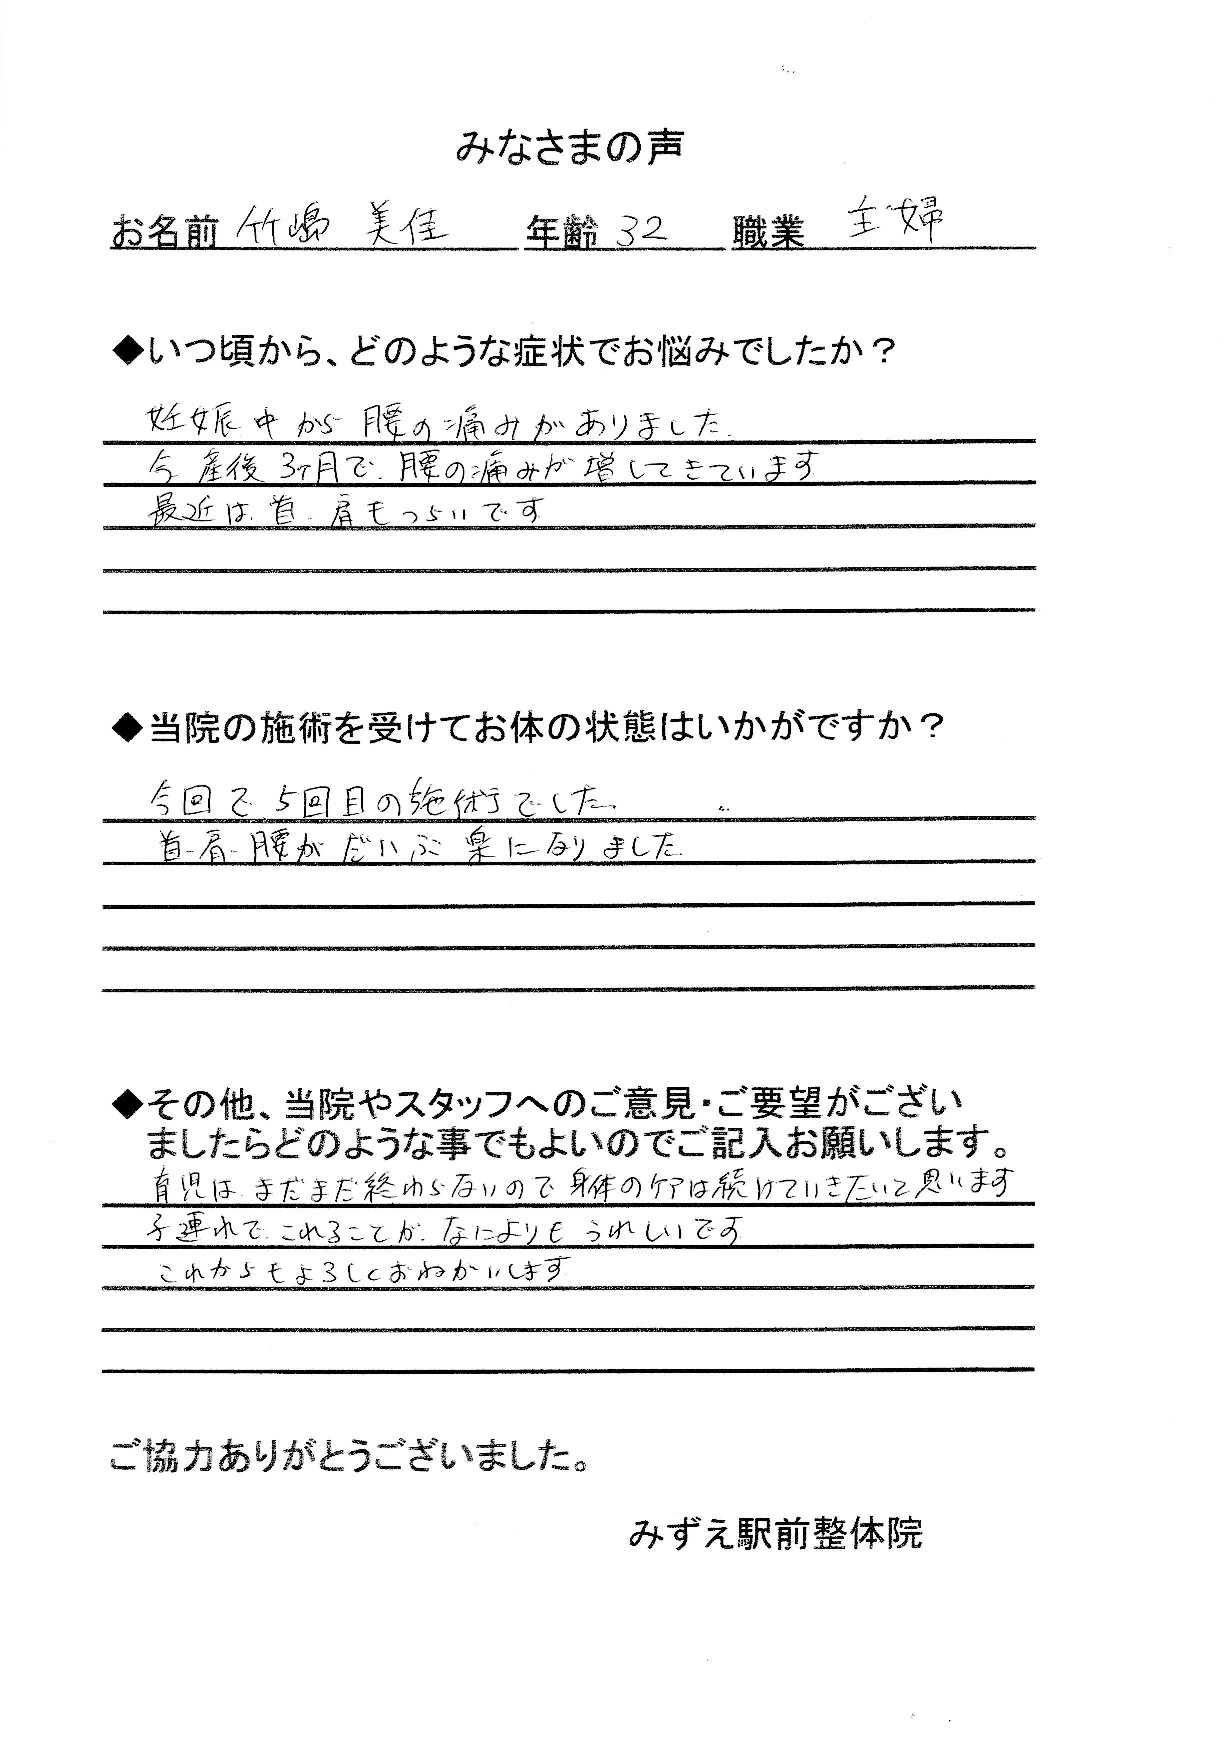 みなさまの声
お名前 竹嶋 美佳 年齢 32 職業 主婦
◆いつ頃から、どのような症状でお悩みでしたか？
妊娠中から腰の痛みがありました.
今産後3ヶ月で.腰の痛みが増してきています
最近は.首.肩もつらいです
◆当院の施術を受けてお体の状態はいかがですか？
今回で5回目の施術でした.
首-肩-腰がだいぶ楽になりました.
◆その他、当院やスタッフへのご意見・ご要望がござい
ましたらどのような事でもよいのでご記入お願いします。
育児は.まだまだ終わらないので身体のケアは続けていきたいと思います
子連れで.これることが.なによりもうれしいです
これからもよろしくおねがいします
ご協力ありがとうございました。
みずえ駅前整体院